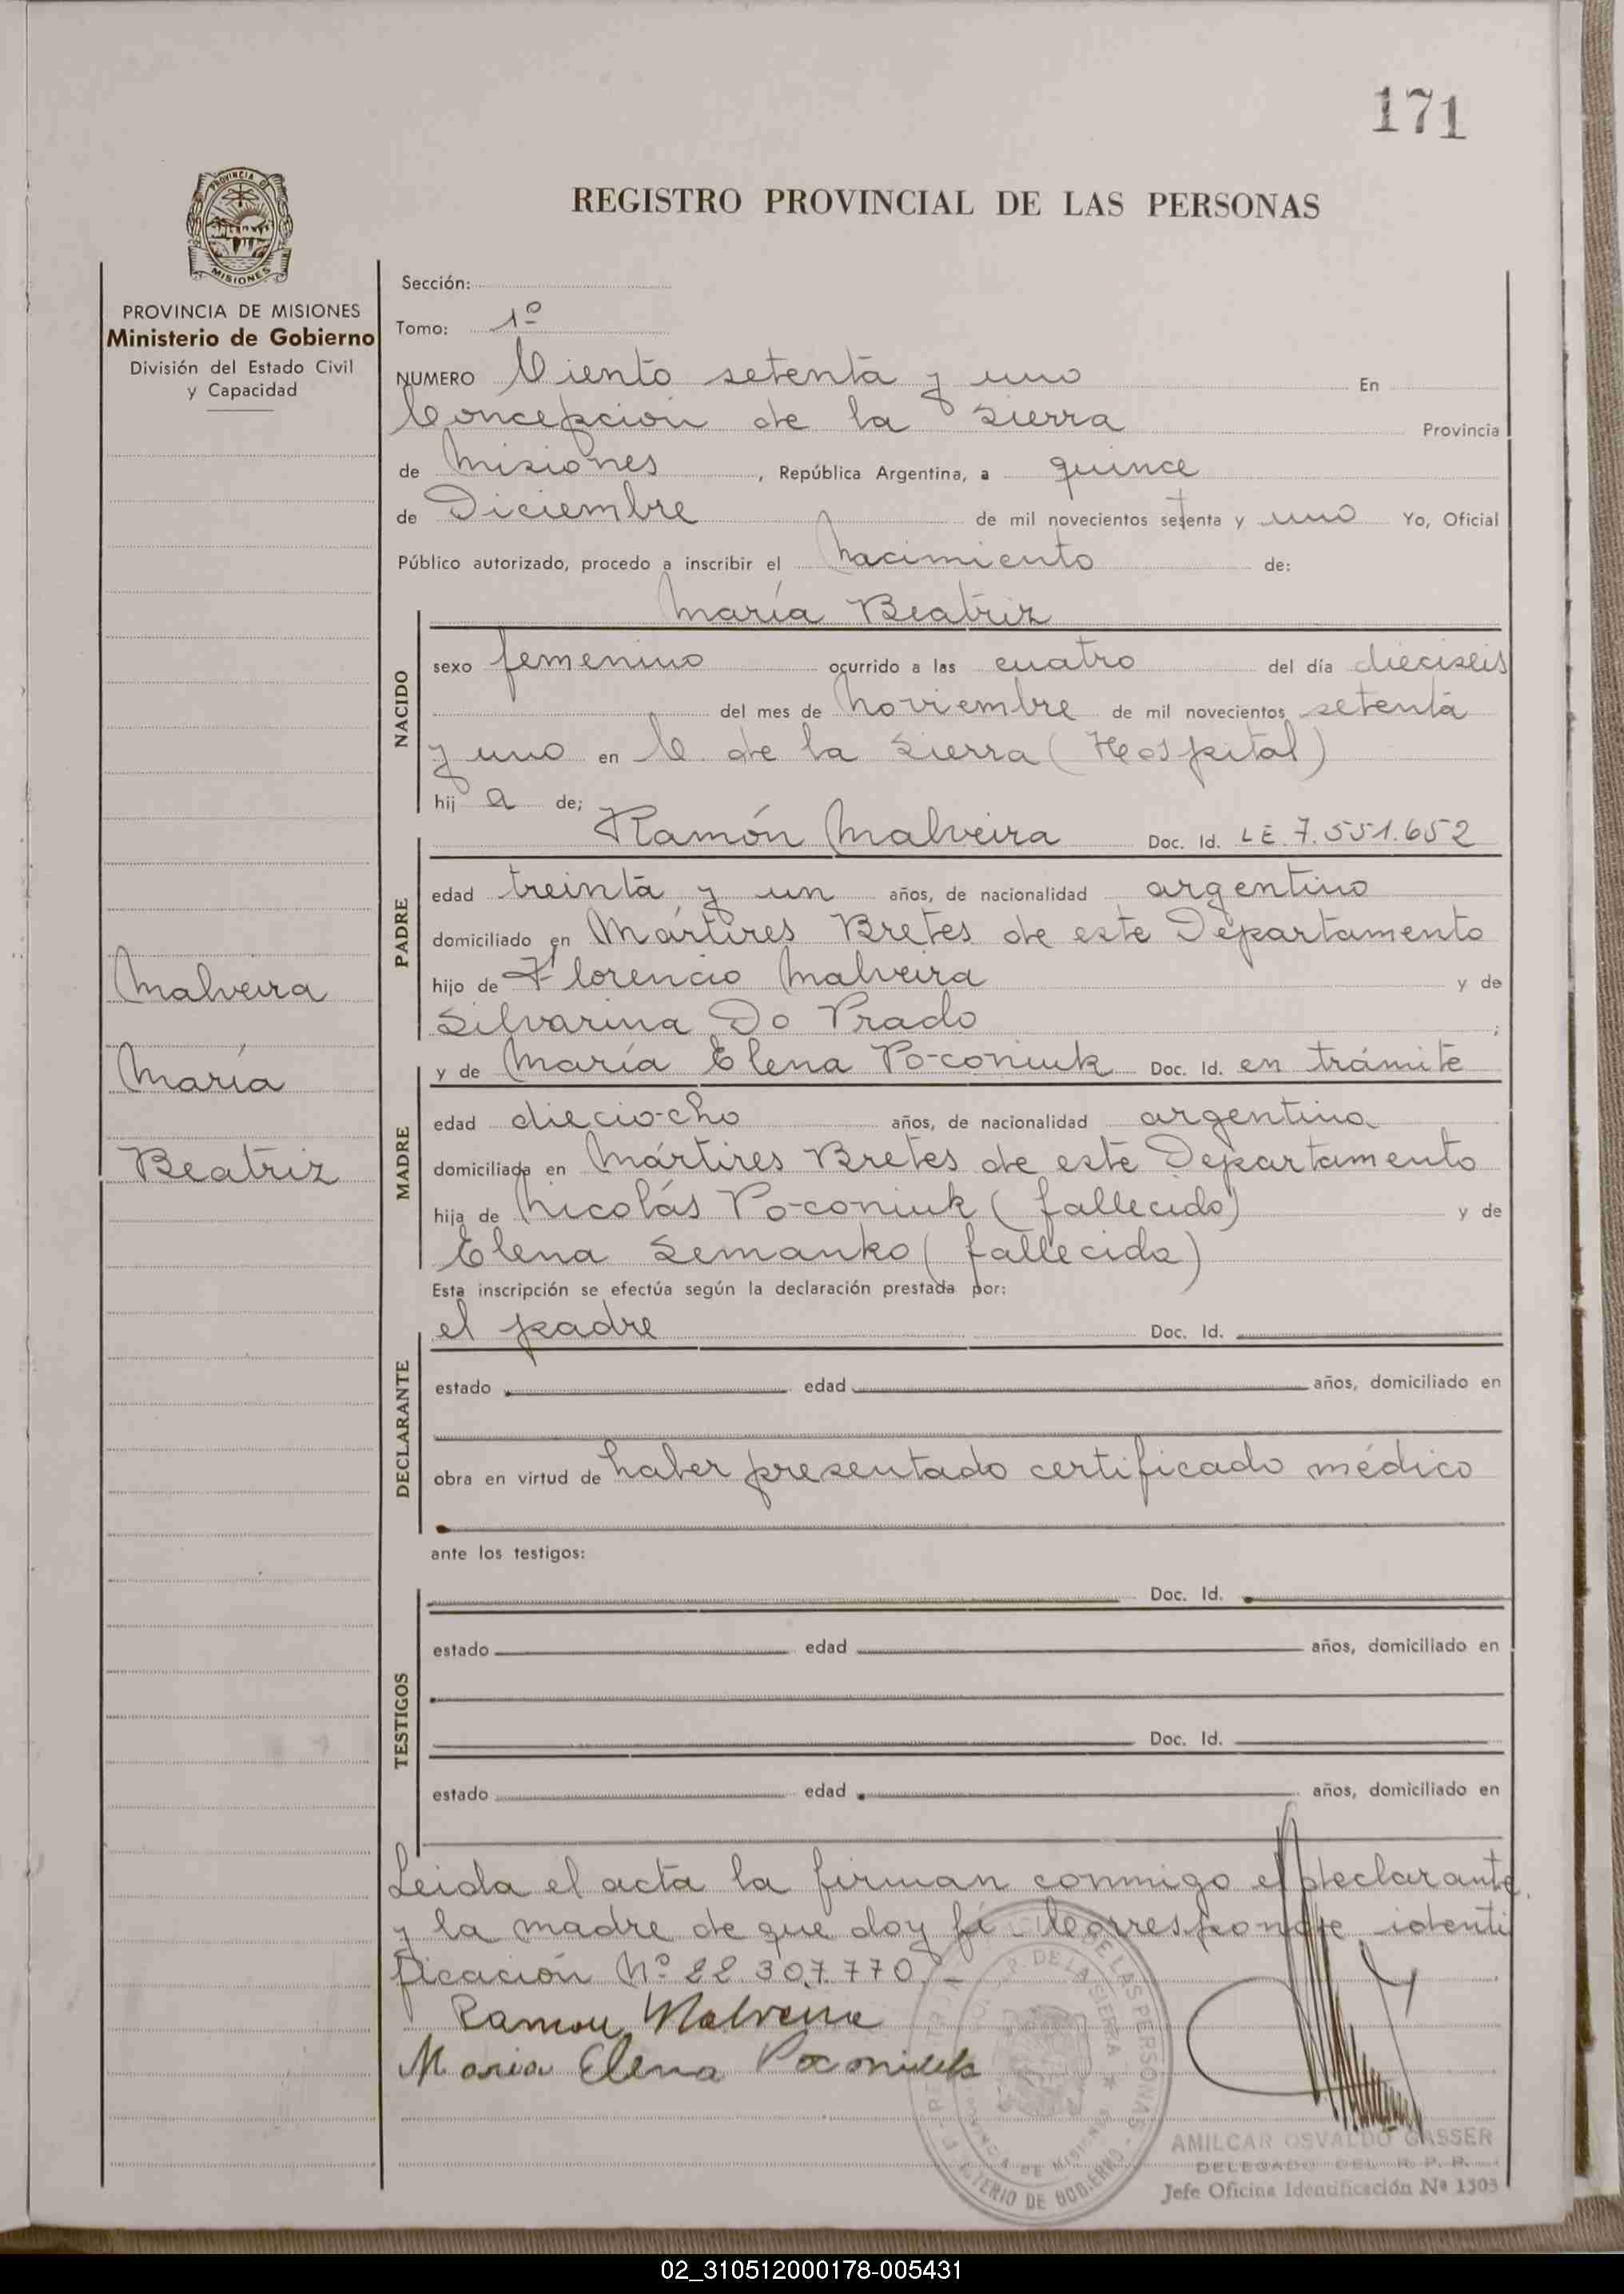 171
PROVINCIA DE
MISIONES
REGISTRO PROVINCIAL DE LAS PERSONAS
PROVINCIA DE MISIONES
Ministerio de Gobierno
División del Estado Civil
y Capacidad
Sección:
Tomo: 1º
NUMERO Ciento setenta y uno En
Concepcion de la Sierra Provincia
de Misiones, República Argentina, a quince
de Diciembre de mil novecientos setenta y uno Yo, Oficial
Público autorizado, procedo a inscribir el Nacimiento de:
María Beatriz
NACIDO
sexo femenino ocurrido a las cuatro del día dieciseis
del mes de Noviembre de mil novecientos setenta
y uno en C. de la Sierra (Hospital)
hij a de;
Ramón Malveira Doc. Id. LE 7.551.652
PADRE
edad treinta y un años, de nacionalidad argentino
domiciliado en Mártires Bretes de este Departamento
hijo de Florencio Malveira y de
Silvarina Do Prado;
y de María Elena Poconiuk Doc. Id. en trámite
MADRE
edad dieciocho años, de nacionalidad argentina
domiciliada en Mártires Bretes de este Departamento
hija de Nicolás Poconiuk (fallecido) y de
Elena Semanko (fallecida)
Esta inscripción se efectúa según la declaración prestada por:
el padre Doc. Id.
DECLARANTE
estado edad años, domiciliado en
obra en virtud de haber presentado certificado médico
ante los testigos:
Doc. Id.
TESTIGOS
estado edad años, domiciliado en
Doc. Id.
estado edad años, domiciliado en
Malveira
María
Beatriz
Leida el acta la firman conmigo el declarante
y la madre de que doy fé. Corresponde identi
ficación Nº 22.307.770.-
Ramon Malveira
Maria Elena Poconiuk
DE LAS PERSONAS
DE LA SIERRA
DE MISIONES
DE GOBIERNO
AMILCAR OSVALDO GASSER
DELEGADO DEL R. P. P.
Jefe Oficina Identificación Nº 1503
02_310512000178-005431